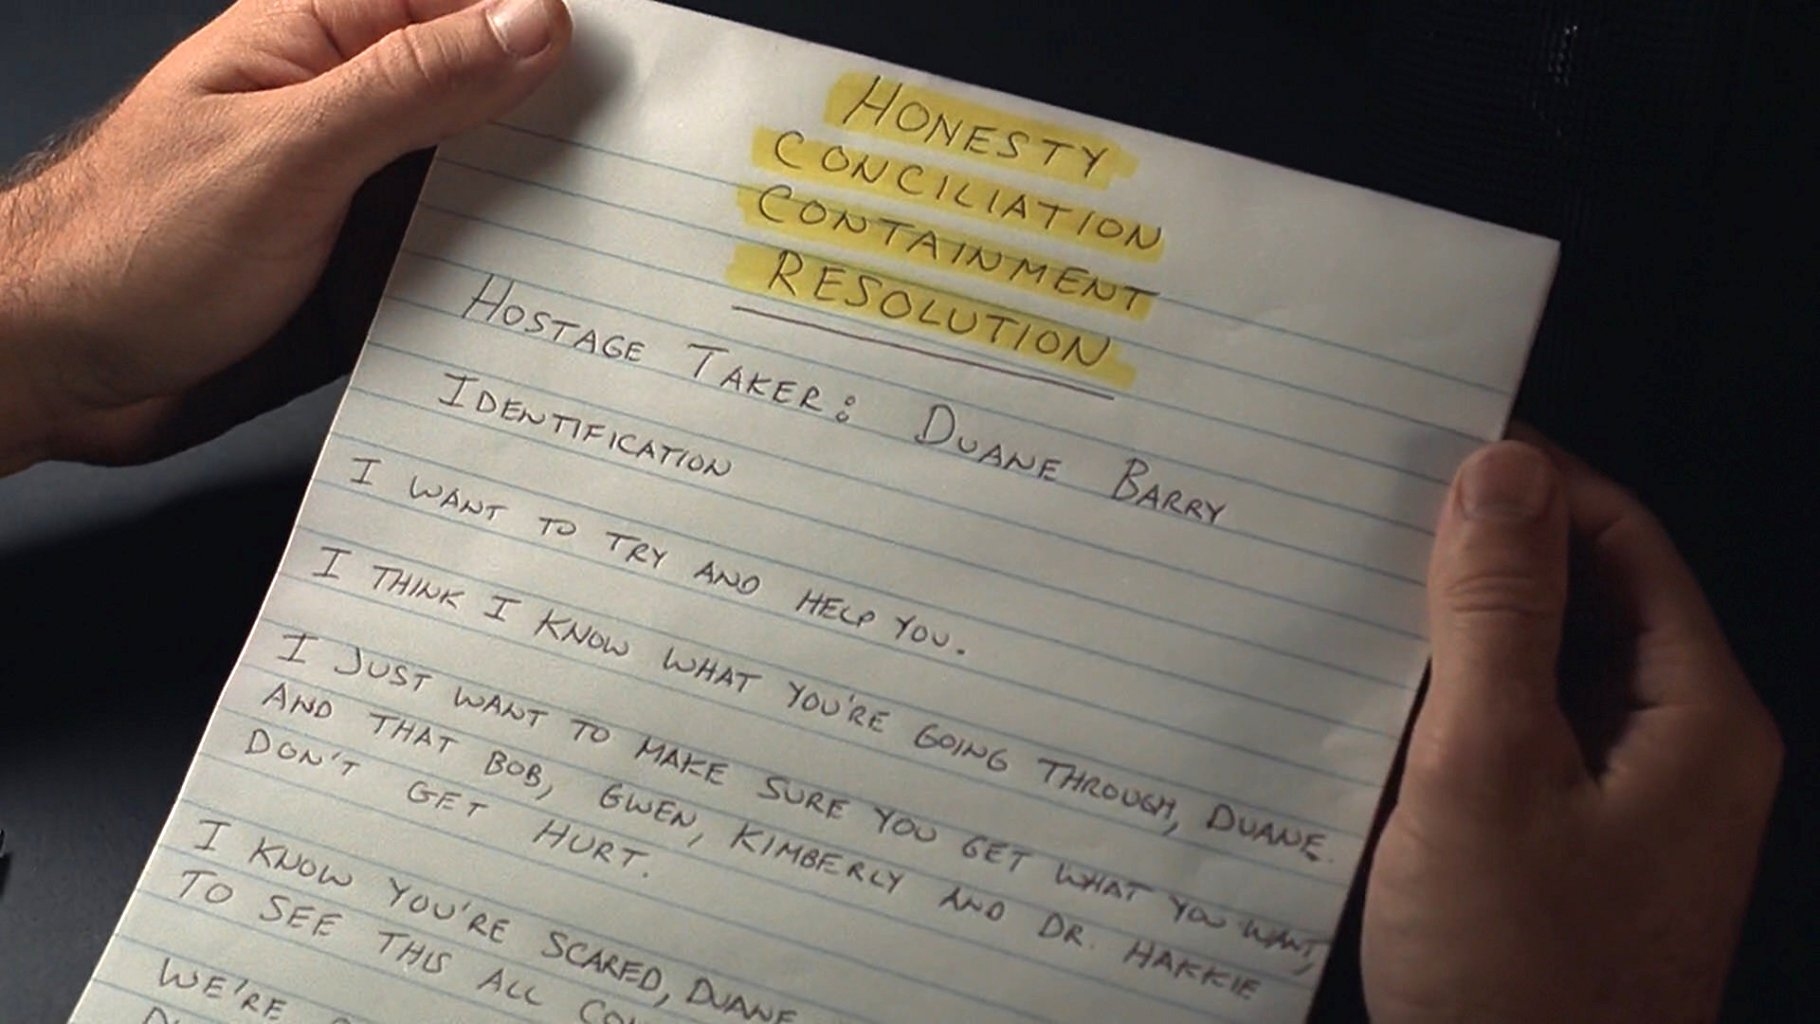 HONESTY
CONCILIATION
CONTAINMENT
RESOLUTION
HOSTAGE TAKER: DUANE BARRY
IDENTIFICATION
I WANT TO TRY AND HELP YOU.
I THINK I KNOW WHAT YOU'RE GOING THROUGH, DUANE.
I JUST WANT TO MAKE SURE YOU GET WHAT YOU WANT,
AND THAT BOB, GWEN, KIMBERLY AND DR. HAKKIE
DON'T GET HURT.
I KNOW YOU'RE SCARED, DUANE
TO SEE THIS ALL
WE'RE